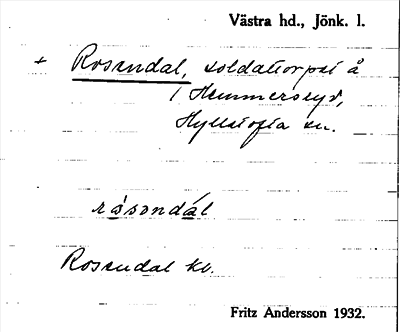 Västra hd., Jönk. l.
+ Rosendal, soldattorpet å
1 Hemmersryd,
Hylletofta sn.
råsəndál
Rosendal kb.
Fritz Andersson 1932.